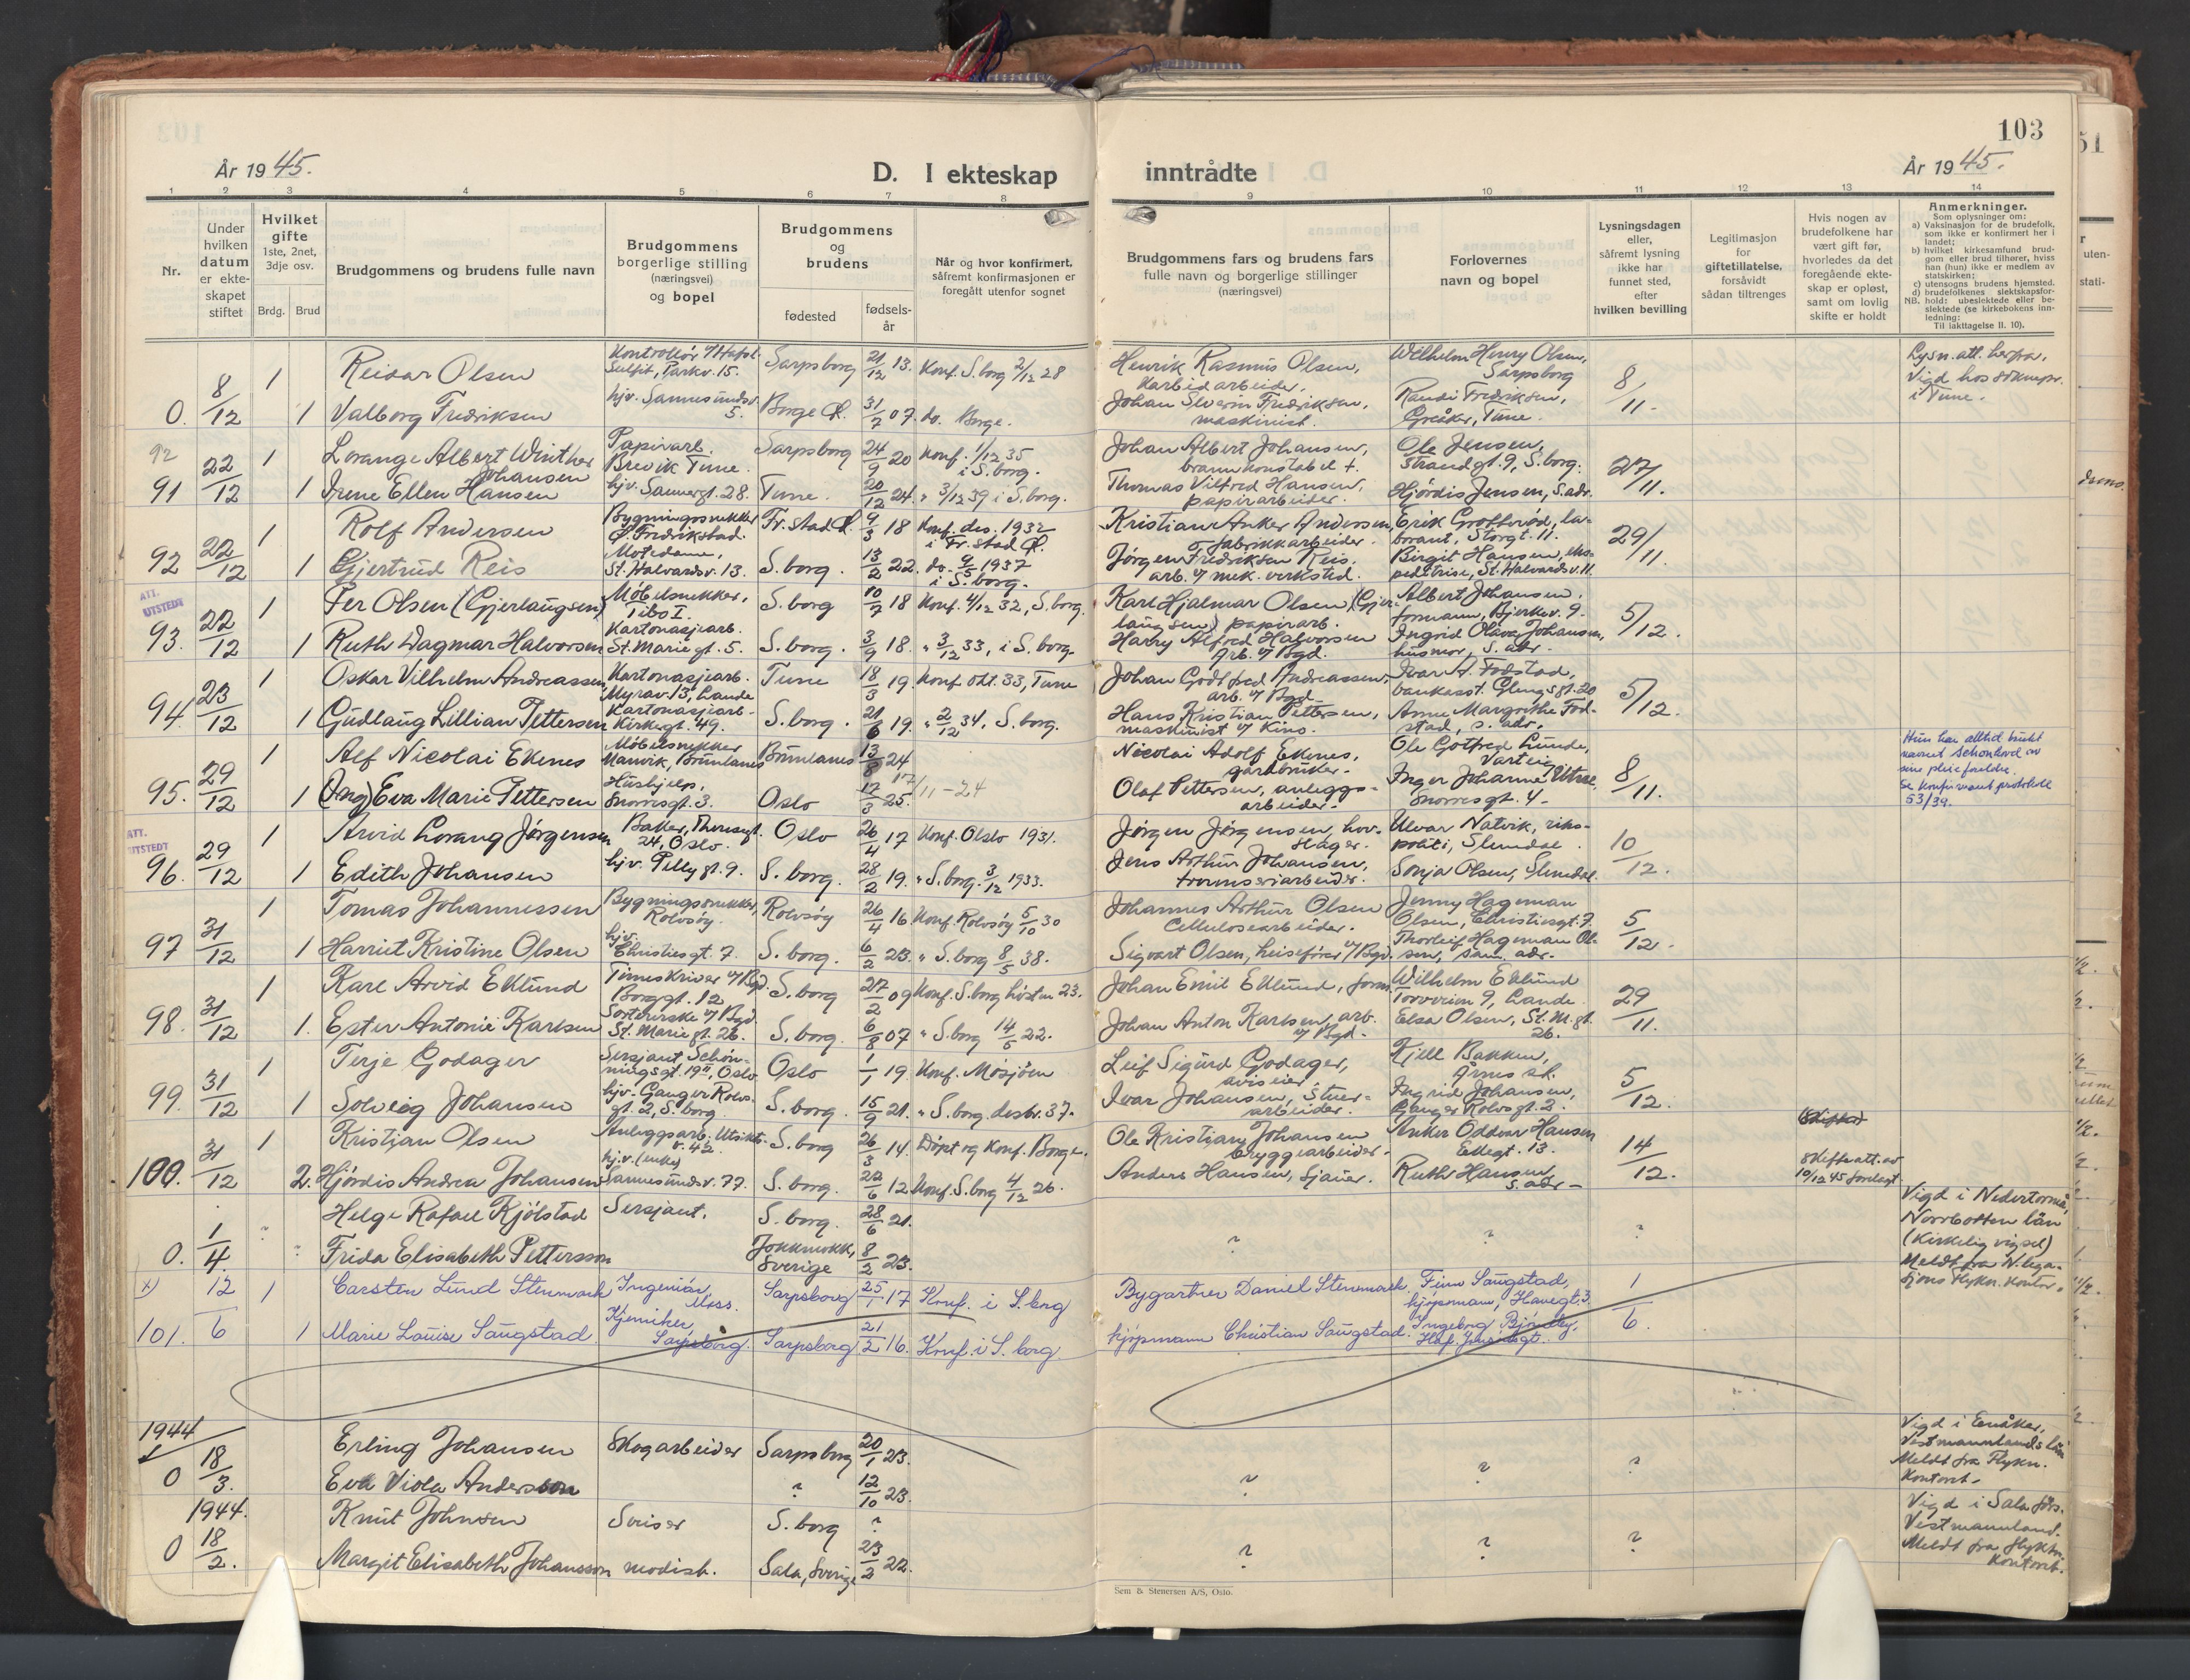 103
År 1945.
D. I ekteskap inntrådte
År 1945.
1 2 3 4 5 6 7 8 9 10 11 12 13 14
Nr.
Under hvilken datum er ekteskapet stiftet
Hvilket gifte 1ste, 2net, 3dje osv.
Brdg. Brud
Brudgommens og brudens fulle navn
Brudgommens borgerlige stilling (næringsvei) og bopel
Brudgommens og brudens
fødested
fødsels-år
Når og hvor konfirmert, såfremt konfirmasjonen er foregått utenfor sognet
Brudgommens fars og brudens fars fulle navn og borgerlige stillinger (næringsvei)
Forlovernes navn og bopel
Lysningsdagen eller, såfremt lysning ikke har funnet sted, efter hvilken bevilling
Legitimasjon for giftetillatelse, forsåvidt sådan tiltrenges
Hvis nogen av brudefolkene har vært gift før, hvorledes da det foregående ekteskap er opløst, samt om lovlig skifte er holdt
Anmerkninger.
Som oplysninger om:
a) Vaksinasjon for de brudefolk, som ikke er konfirmert her i landet;
b) hvilket kirkesamfund brudgom eller brud tilhører, hviss han (hun) ikke er medlem av statskirken;
c) utensogns brudens hjemsted.
d) brudefolkenes slektskapsforhold: ubeslektede eller beslektede (se kirkebokens innledning:
NB. Til iakttagelse II. 10).
0. 8/12 1 Reidar Olsen Kontrollør v/Hafsl. Sulfit, Parkv. 15. Sarpsborg 21/12 13. Konf. S.borg 2/12 28 Henrik Rasmus Olsen, Karbidarbeider. Wilhelm Henry Olsen, Sarpsborg 8/11. Lysn.att. herfra. Vigd hos sokneprs. i Tune.
1 Valborg Fredriksen hjv. Sannesundsv. 5. Borge Ø. 31/7 07. do. Borge. Johan Severin Fredriksen, maskinist. Randi Fredriksen, Greåker, Tune.
92
91 22/12 1 Lorange Albert Winther Johansen Papirarb. Brevik Tune. Sarpsborg 24/9 20 Konf. 1/12 35 i S.borg. Johan Albert Johansen, brannkonstabel +. Ole Jensen, Strandgt. 9, S.borg. 27/11.
1 Irene Ellen Hansen hjv. Sauergt. 28. Tune. 20/12 24. " 3/12 39 i S.borg. Thomas Vilfred Hansen, papirarbeider. Hjørdis Jensen, s.adr.
92 22/12 1 Rolf Andersen Bygningssnekker Ø. Fredrikstad. Fr.stad Ø. 9/3 18 Konf. des. 1932 i Fr.stad Ø. Kristian Anker Andersen, fabrikkarbeider. Erik Grofterød, laborant, Storgt. 11. 29/11.
1 Gjertrud Reis Motedame, St. Halvardsv. 13. S.borg. 13/2 22. do. 9/5 1937 i S.borg. Jørgen Fredriksen Reis. arb. v/ mek. verksted. Birgit Hansen, ekspeditrise, St. Halvardsv. 11
ATT. UTSTEDT
93. 22/12 1 Per Olsen (Gjerlaugsen) Møbelsnekker, Tibo I. S.borg 10/9 18 Konf. 4/12 32, S.borg. Karl Hjalmar Olsen, (Gjerlaugsen) papirarb. Albert Johansen, formann, Bjerkev. 9. 5/12.
1 Ruth Dagmar Halvorsen Kartonasjearb. St. Mariegt. 5. S.borg. 3/9 18. " 3/12 33, i S.borg. Harry Alfred Halvorsen Arb. v/ Bgd. Ingrid Olava Johansen, husmor, s. adr.
94. 23/12 1 Oskar Vilhelm Andreassen Kartonasjearb. Myrav. 13, Lande Tune 18/3 19. Konf okt. 33, Tune Johan Godtfred Andreassen, arb. v/ Bgd. Ivar A. Fodstad, bankasst. Glengsgt. 20 5/12.
1 Gudlaug Lillian Pettersen Kartonasjearb. Kirkegt. 49. S.borg. 21/6 19. " 2/12 34, S.borg. Hans Kristian Pettersen, maskinist v/ Kino. Anne Margrethe Fodstad, s. adr.
95. 29/12 1 Alf Nicolai Ekenes Møbelsnekker Manvik, Brunlanes Brunlanes 13/8 24 Nicolai Adolf Ekenes, gardbruker. Ole Gotfred Lunde, Varteig 8/11. Hun har alltid brukt navnet Schonhovd av sine pleieforeldre. Se konfirmant protokoll 53/39.
1 (Ing) Eva Marie Pettersen Hushjelp, Snorresgt. 3. Oslo 12/3 25. 17/11-24 Olaf Pettersen, anleggsarbeider. Inger Johanne Vitsø, Snorresgt. 4.
ATT. UTSTEDT
96. 29/12 1 Arvid Lorang Jørgensen Baker, Theresgt. 24, Oslo. Oslo 26/4 17 Konf. Oslo 1931. Jørgen Jørgensen, hovslager. Ulvar Natvik, rikspoliti, Slemdal. 10/12.
1 Edith Johansen hjv. Pellygt. 9. S.borg. 28/2 19. " S.borg. 3/12 1933. Jens Arthur Johansen, trevareiarbeider. Sonja Olsen, Slemdal.
97 31/12 1 Tomas Johannessen Bygningssnekker, Rolvsøy. Rolvsøy 26/4 16 Konf. Rolvsøy 5/10 30 Johannes Arthur Olsen Cellulosearbeider. Jenny Hageman Olsen, Christiesgt. 7. 5/12.
1 Harriet Kristine Olsen hjv. Christiesgt. 7. S.borg. 6/2 23. " S.borg 8/5 38. Sigvart Olsen, heisefører v/Bgd. Thorleif Hageman Olsen, sam. adr.
98. 31/12 1 Karl Arvid Eklund Timeskriver v/Bgd. Borggt. 12 S.borg 27/2 09 Konf. S.borg høsten 23. Johan Emil Eklund, form. Wilhelm Eklund Torvveien 9, Lande. 29/11.
1. Ester Antonie Karlsen Sorterirske v/ Bgd. St. Mariegt. 26. S.borg. 6/8 07 " S.borg 14/5 22. Johan Anton Karlsen, arb. v/ Bgd. Elsa Olsen, St. M.gt. 26.
99. 31/12 1 Terje Godager Sersjant, Schønningsgt. 19 II, Oslo Oslo 1/1 19. Konf. Mosjøen Leif Sigurd Godager, aviseier. Kjell Bakken, Årnes st. 5/12.
1 Solveig Johansen hjv. Ganger Rolvsgt. 2, S.borg S.borg. 15/9 21. " S.borg. desbr. 37. Ivar Johansen, Stuerarbeider. Ingrid Johansen, Ganger Rolvsgt. 2.
100. 31/12 1 Kristian Olsen Anleggsarb. Utsiktsv. 42. S.borg 26/3 14. Døpt og Konf. Borge. Ole Kristian Johansen bryggearbeider. Anker Oddvar Hansen Ekegt. 13. 14/12. (Skifte) Skifteatt. av 10/12 45 forelagt
2. Hjørdis Andrea Johansen hjv. (enke) Sannesundsv. 77. S.borg. 22/6 12 Konf. S.borg 4/12 26. Anders Hansen, Sjauer. Ruth Hansen, s. adr.
0. 1/4. ? Helge Rafael Kjølstad Sersjant. S.borg. 28/6 21. ? ? ? Vigd i Nedertorneå, Norrbotten län (Kirkelig vigsel) Meldt fra N. legasjons flyktn. kontor.
Frida Elisabeth Pettersson Jokkmokk, Sverige 8/2 23.
x) 101. 12/6 1 Carsten Lund Stenmark Ingeniør, Moss. Sarpsborg 25/1 17 Konf. i S.borg Bygartner Daniel Stenmark. Finn Saugstad, kjøpmann, Havegt. 3. 1/6.
1 Marie Louise Saugstad. Kjemiker, Sarpsborg. Sarpsborg 21/2 16. Konf. i S.borg. Kjøpmann Christian Saugstad. Ingeborg Bjørnby,
1944
0 18/3. Erling Johansen Skogarbeider Sarpsborg 20/1 23. ? ? ? Vigd i Enåker, Vestmannlands län Meldt fra Flykn. Kontoret.
Eva Viola Andersson ? 12/10 23.
1944.
0 18/2. Knut Johnsen S.borg ? ? ? ? Vigd i Sala förs. Vestmannland. Meldt fra flyktn. Kontoret.
Margit Elisabeth Johansson modist. Sala, Sverige 23/2 22.
Sem & Stenersen A/S, Oslo.